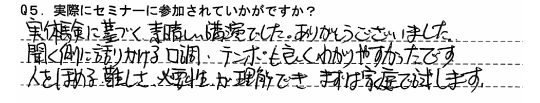 Q5. 実際にセミナーに参加されていかがですか?
実体験に基づく素晴しい講演でした。ありがとうございました。
聞く側に語りかける口調、テンポも良くわかりやすかったです
人をほめる難しさ、必要性が理解でき まずは家庭で試します。